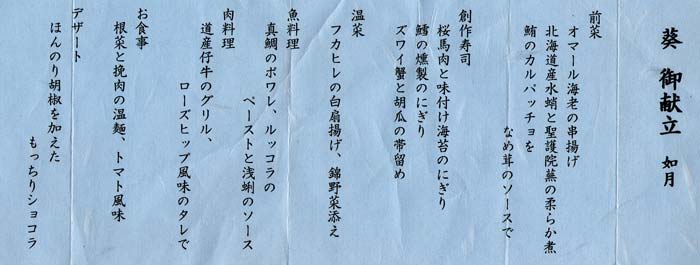 葵 御献立 如月
前菜
オマール海老の串揚げ
北海道産水蛸と聖護院蕪の柔らか煮
鮪のカルパッチョを
なめ茸のソースで
創作寿司
桜馬肉と味付け海苔のにぎり
鱈の燻製のにぎり
ズワイ蟹と胡瓜の帯留め
温菜
フカヒレの白扇揚げ、錦野菜添え
魚料理
真鯛のポワレ、ルッコラの
ペーストと浅蜊のソース
肉料理
道産仔牛のグリル、
ローズヒップ風味のタレで
お食事
根菜と挽肉の温麺、トマト風味
デザート
ほんのり胡椒を加えた
もっちりショコラ